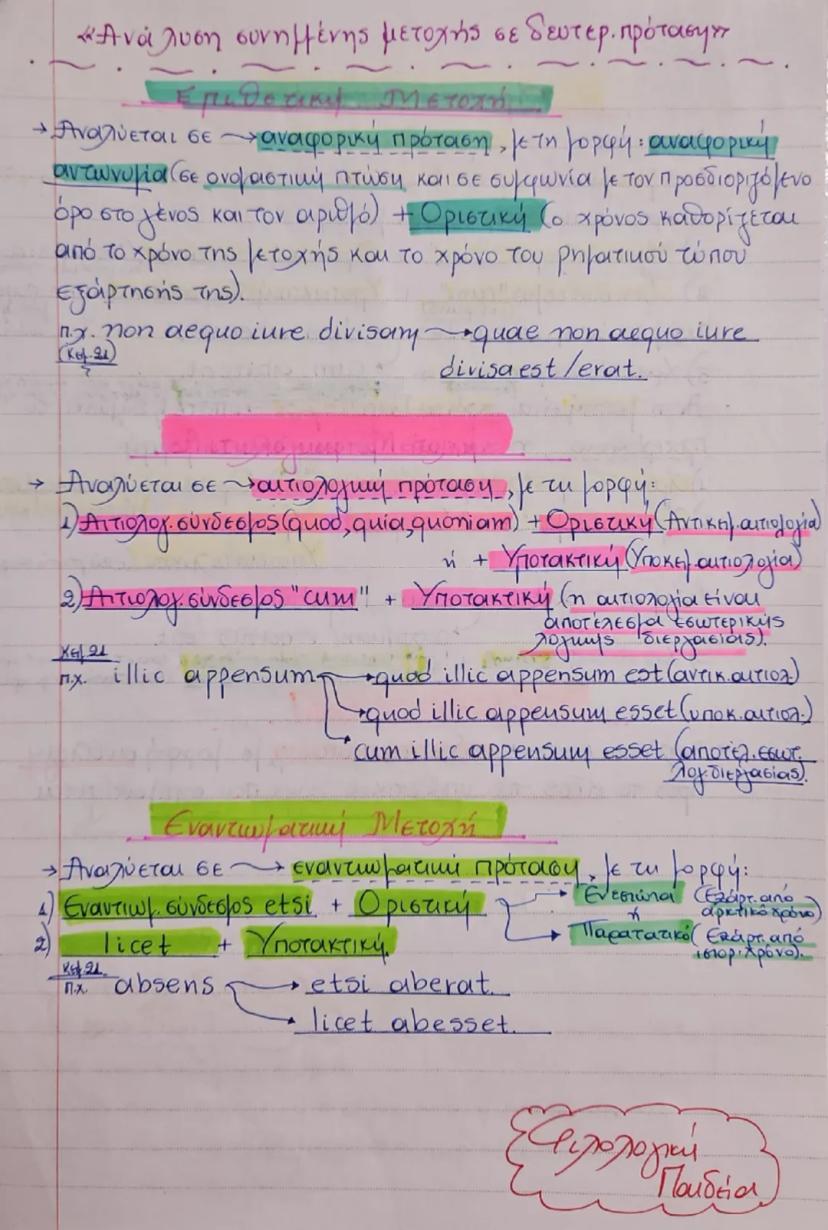 «Ανάλυση συνημμένης μετοχής σε δευτερ. πρόταση»
Επιθετική Μετοχή
→ Αναλύεται σε → αναφορική πρόταση, με τη μορφή: αναφορική
αντωνυμία (σε ονομαστική πτώση και σε συμφωνία με τον προσδιοριζόμενο
όρο στο γένος και τον αριθμό) + Οριστική (ο χρόνος καθορίζεται
από το χρόνο της μετοχής και το χρόνο του ρηματικού τύπου
εξάρτησής της).
π.χ. non aequo iure divisam → quae non aequo iure
(Κεφ. 21)
divisa est / erat.
→ Αναλύεται σε → αιτιολογική πρόταση, με τη μορφή:
1) Αιτιολογ. σύνδεσμος (quod, quia, quoniam) + Οριστική (Αντικειμ. αιτιολογία)
ή + Υποτακτική (Υποκειμ. αιτιολογία)
2) Αιτιολογ. σύνδεσμος "cum" + Υποτακτική (η αιτιολογία είναι
αποτέλεσμα εσωτερικής
λογικής διεργασίας).
Κεφ. 21
π.χ. illic appensum → quod illic appensum est (αντικ. αιτιολ.)
→ quod illic appensum esset (υποκ. αιτιολ.)
cum illic appensum esset (αποτελ. εσωτ.
λογ. διεργασίας).
Εναντιωματική Μετοχή
→ Αναλύεται σε → εναντιωματική πρόταση, με τη μορφή:
1) Εναντιωμ. σύνδεσμος etsi + Οριστική → Ενεστώτα (Εξάρτ. από
ή αρκτικό χρόνο)
2) licet + Υποτακτική. → Παρατατικό (Εξάρτ. από
ιστορ. χρόνο).
Κεφ. 21.
π.χ. absens → etsi aberat.
→ licet abesset.
Φιλολογική
Παιδεία